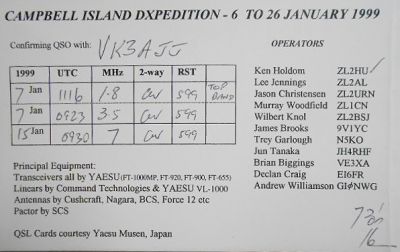 CAMPBELL ISLAND DXPEDITION - 6 TO 26 JANUARY 1999
Confirming QSO with: VK3AJJ
1999 UTC MHz 2-way RST
7 Jan 1116 1.8 CW 599 TOP BAND
7 Jan 0923 3.5 CW 599
15 Jan 0930 7 CW 599
Principal Equipment:
Transceivers all by YAESU (FT-1000MP, FT-920, FT-900, FT-655)
Linears by Command Technologies & YAESU VL-1000
Antennas by Cushcraft, Nagara, BCS, Force 12 etc
Pactor by SCS
QSL Cards courtesy Yaesu Musen, Japan
OPERATORS
Ken Holdom ZL2HU
Lee Jennings ZL2AL
Jason Christensen ZL2URN
Murray Woodfield ZL1CN
Wilbert Knol ZL2BSJ
James Brooks 9V1YC
Trey Garlough N5KO
Jun Tanaka JH4RHF
Brian Biggings VE3XA
Declan Craig EI6FR
Andrew Williamson GIØNWG
73's